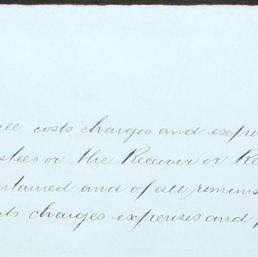 all costs charges and expen
stees or the Receiver or Re
ntained and of all remune
ts charges expenses and